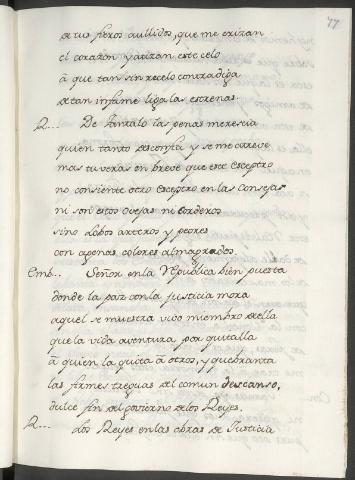 77
de tus fieros aullidos, que me erizan
el corazon y atizan este celo
â que tan sin recelo contradiga
de tan infame liga las estrenas.
R... De Tantalo las penas merescia
quien tanto desconfia y se me atreve
mas tu veras en breve que este esceptro
no consiente otro esceptro en las Consejas
ni son estos ovejas ni Corderos
sino Lobos arteros y peores
con apenas colores almagrados
Emb... Señor en la Republica bien puesta
donde la paz con la justicia mora
aquel se muestra vivo miembro della
que la vida aventura por quitalla
â quien la quita â otros, y quebranta
las firmes treguas del comun descanso,
dulce fin del govierno de los Reyes.
R... Los Reyes en las obras de Justicia